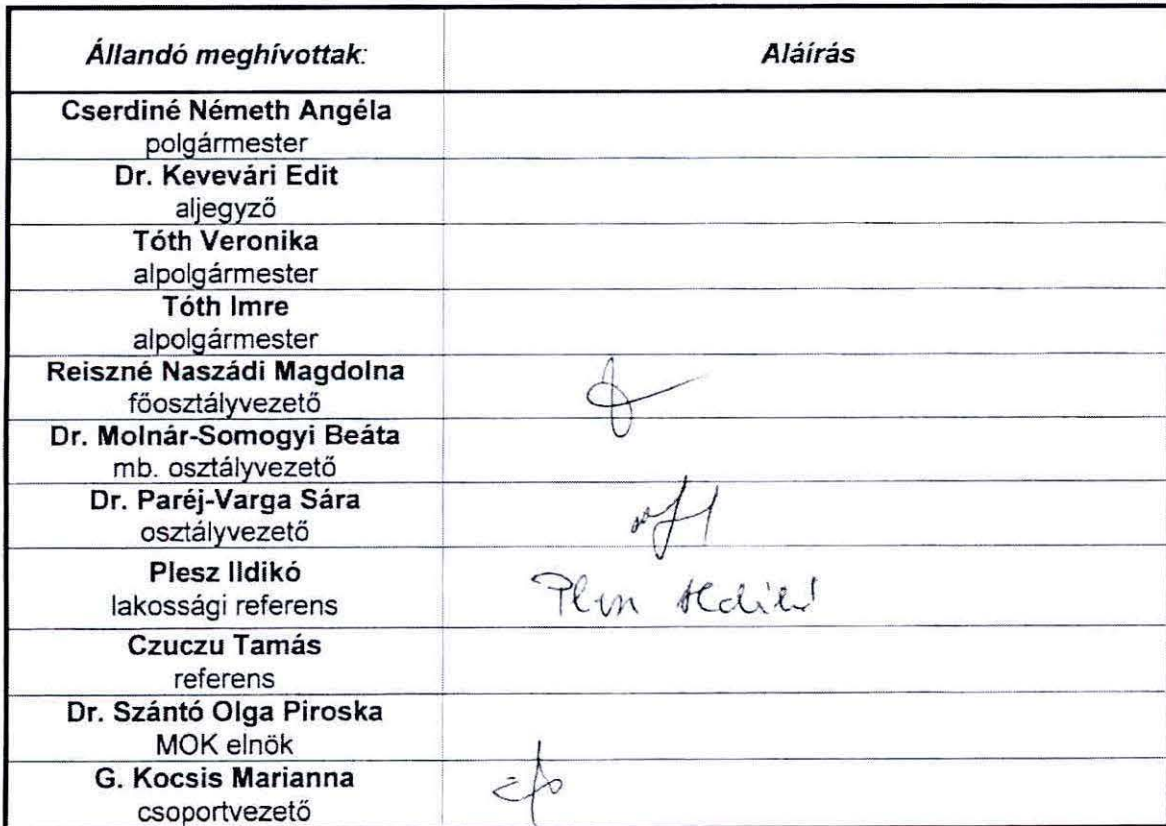 Állandó meghívottak: Aláírás
Cserdiné Németh Angéla
polgármester
Dr. Kevevári Edit
aljegyző
Tóth Veronika
alpolgármester
Tóth Imre
alpolgármester
Reiszné Naszádi Magdolna
főosztályvezető
Dr. Molnár-Somogyi Beáta
mb. osztályvezető
Dr. Paréj-Varga Sára
osztályvezető
Plesz Ildikó
lakossági referens
Czuczu Tamás
referens
Dr. Szántó Olga Piroska
MOK elnök
G. Kocsis Marianna
csoportvezető